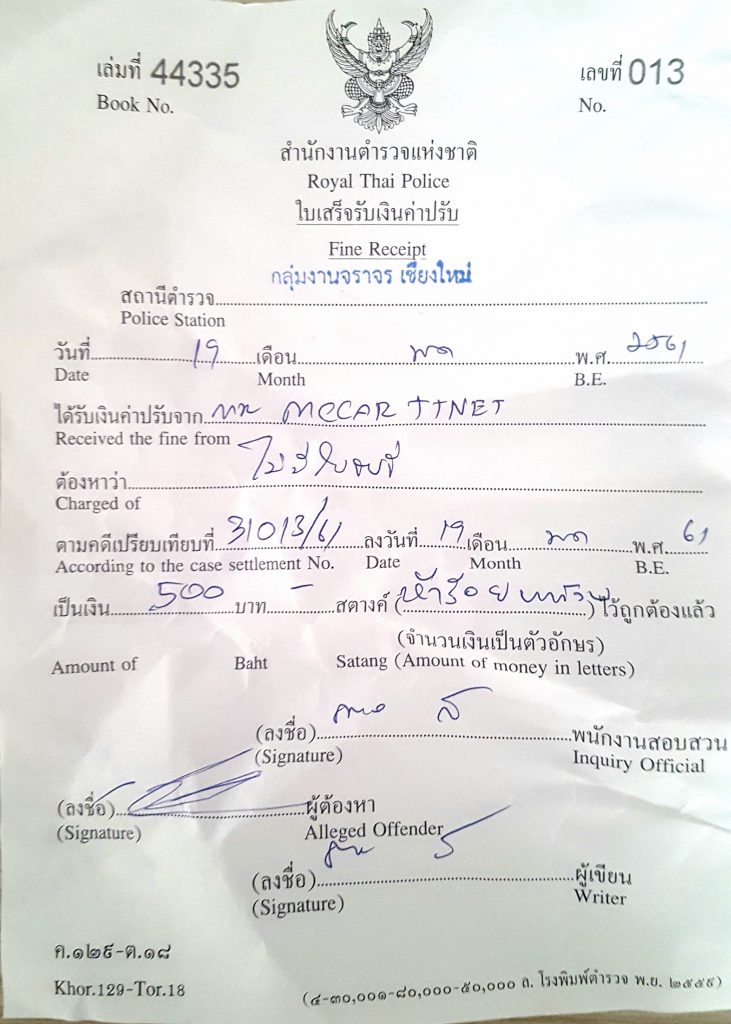 เล่มที่ 44335 เลขที่ 013
Book No. No.
สำนักงานตำรวจแห่งชาติ
Royal Thai Police
ใบเสร็จรับเงินค่าปรับ
Fine Receipt
กลุ่มงานจราจร เชียงใหม่
สถานีตำรวจ
Police Station
วันที่ 19 เดือน พค พ.ศ. 2561
Date Month B.E.
ได้รับเงินค่าปรับจาก MCCAR TTNET
Received the fine from
ต้องหาว่า ไม่มีใบขับขี่
Charged of
ตามคดีเปรียบเทียบที่ 31013/61 ลงวันที่ 19 เดือน พค พ.ศ. 61
According to the case settlement No. Date Month B.E.
เป็นเงิน 500 บาท - สตางค์ (ห้าร้อยบาทถ้วน) ไว้ถูกต้องแล้ว
(จำนวนเงินเป็นตัวอักษร)
Amount of Baht Satang (Amount of money in letters)
(ลงชื่อ) พนักงานสอบสวน
(Signature) Inquiry Official
(ลงชื่อ) ผู้ต้องหา
(Signature) Alleged Offender
(ลงชื่อ) ผู้เขียน
(Signature) Writer
ค.๑๒๙-ต.๑๘
Khor.129-Tor.18
(๔-๓๐,๐๐๑-๘๐,๐๐๐-๕๐,๐๐๐ ล. โรงพิมพ์ตำรวจ พ.ย. ๒๕๕๙)